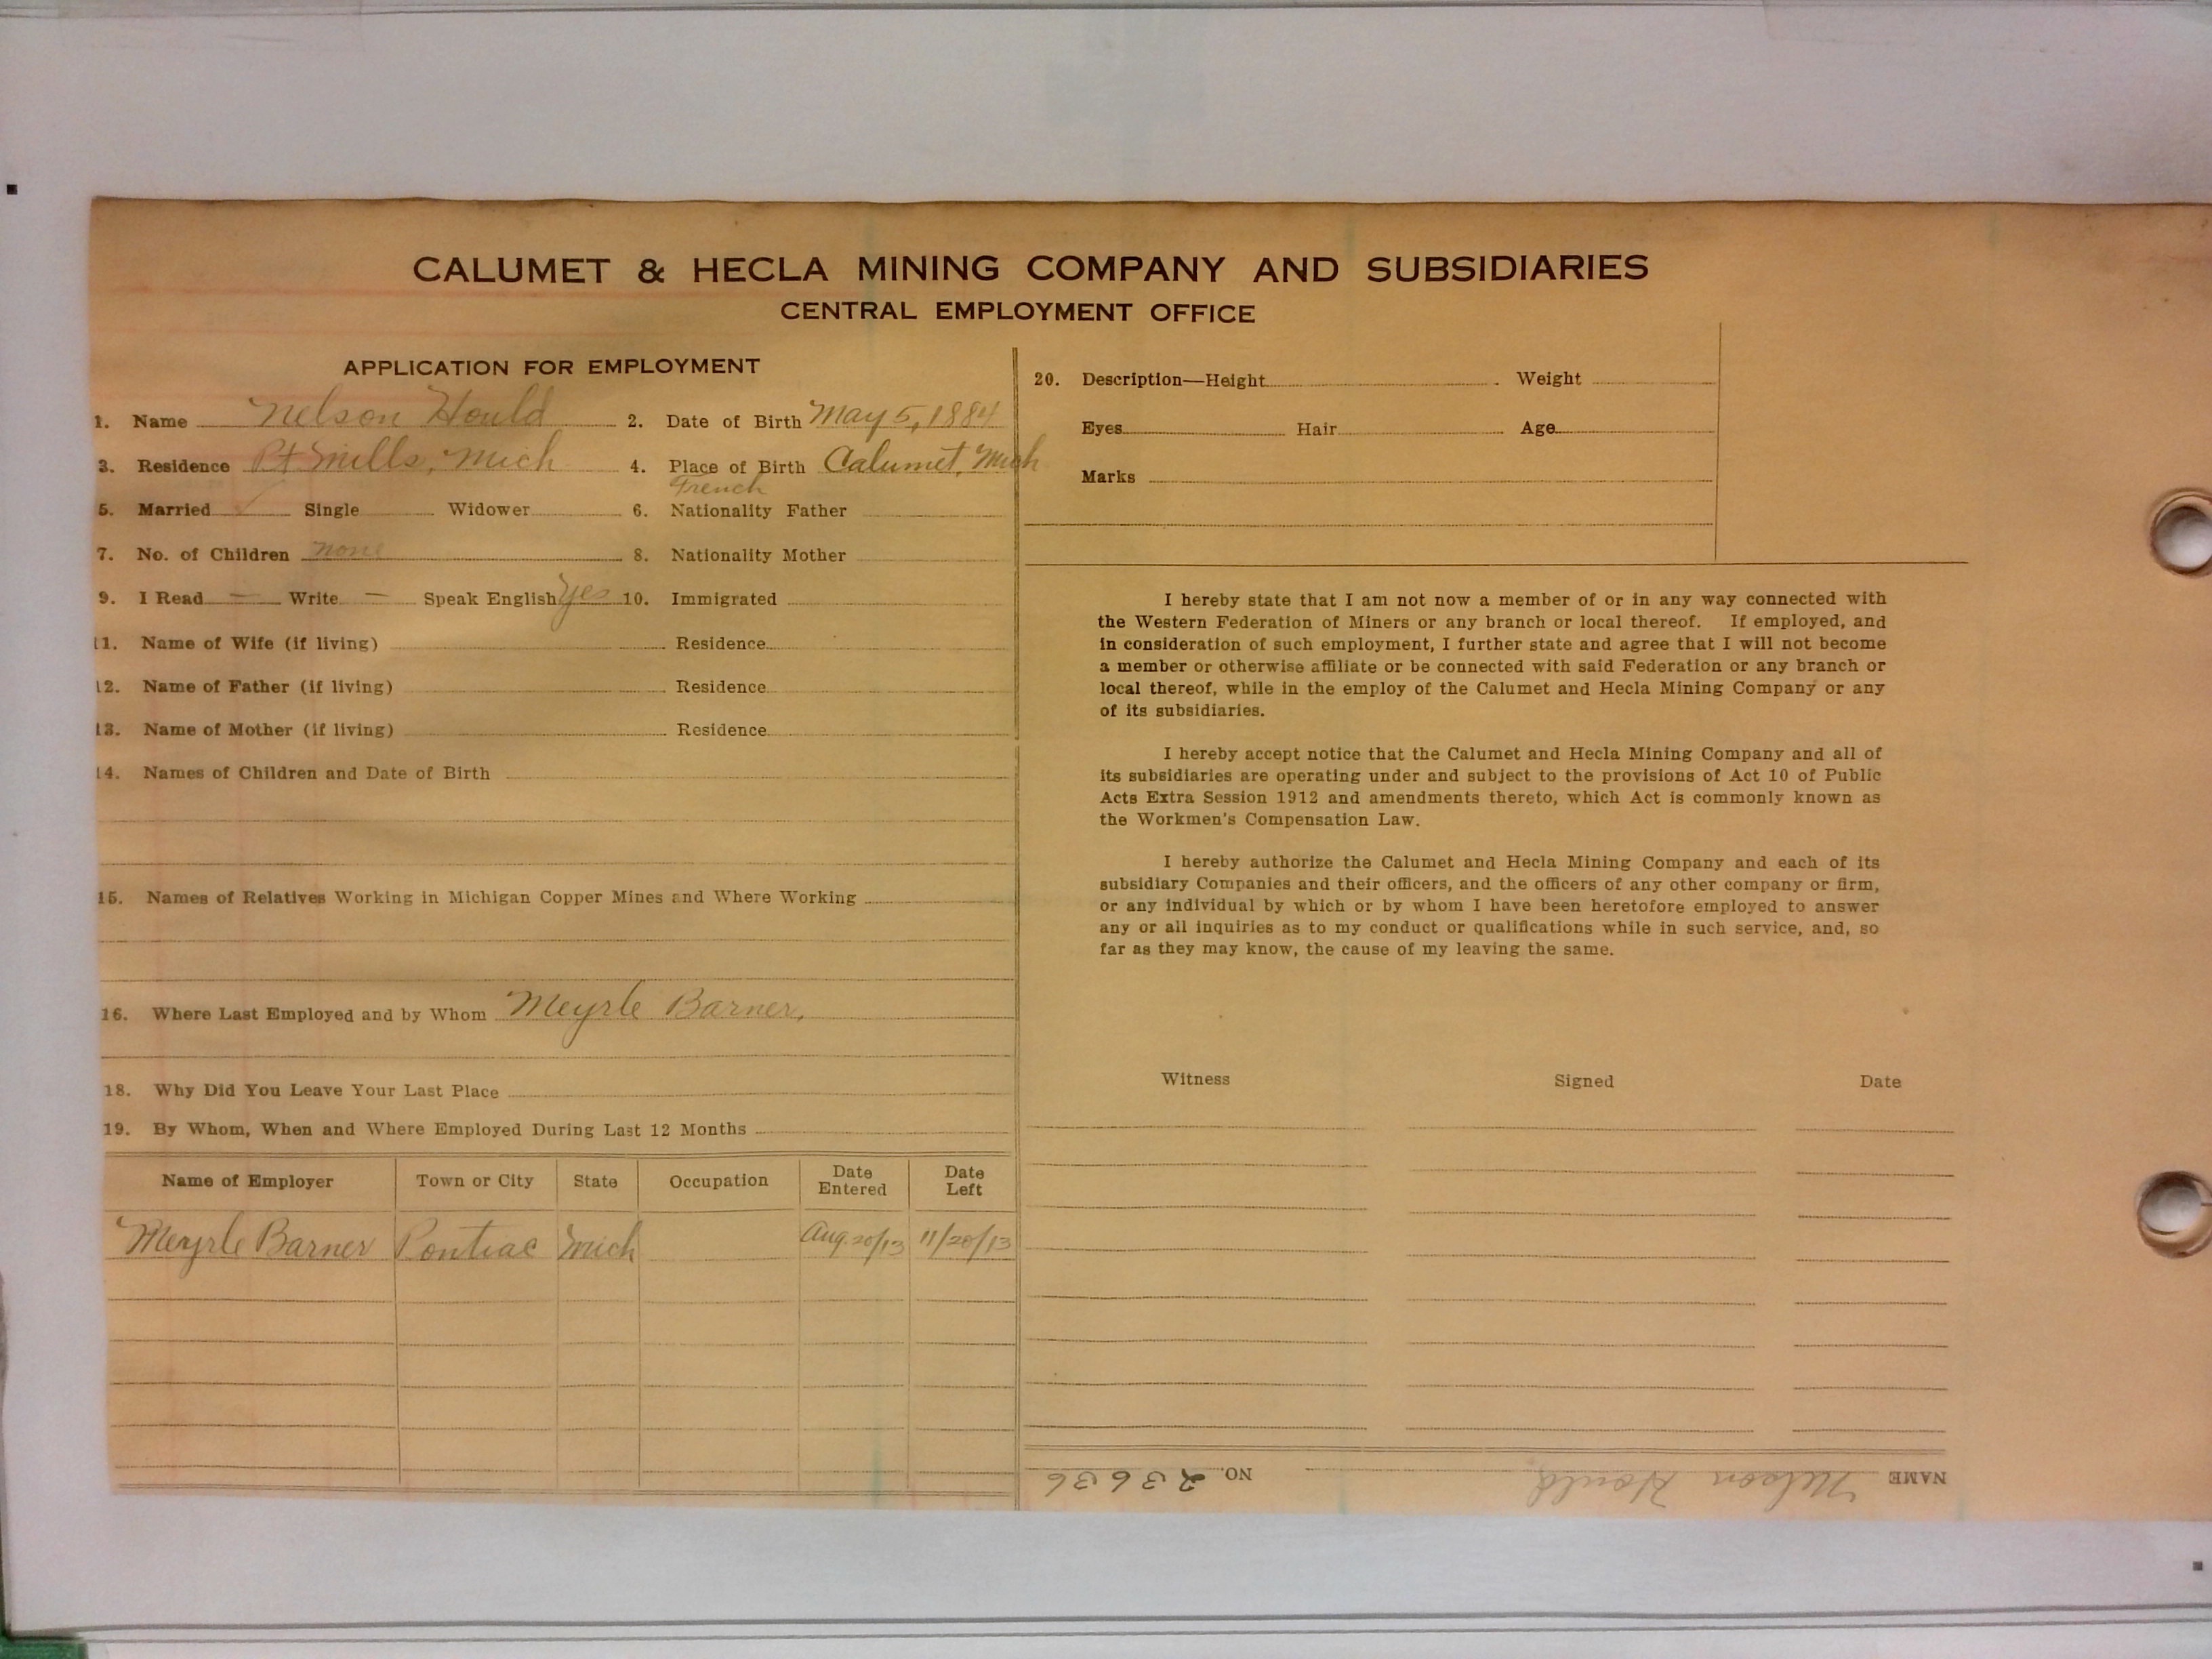 CALUMET & HECLA MINING COMPANY AND SUBSIDIARIES
CENTRAL EMPLOYMENT OFFICE
APPLICATION FOR EMPLOYMENT
1. Name Nelson Hould 2. Date of Birth May 5, 1884
3. Residence Pt Mills, Mich 4. Place of Birth Calumet, Mich
French
5. Married ✓ Single Widower 6. Nationality Father
7. No. of Children none 8. Nationality Mother
9. I Read — Write — Speak English Yes 10. Immigrated
11. Name of Wife (if living) Residence
12. Name of Father (if living) Residence
13. Name of Mother (if living) Residence
14. Names of Children and Date of Birth
15. Names of Relatives Working in Michigan Copper Mines and Where Working
16. Where Last Employed and by Whom Meyrle Barner,
18. Why Did You Leave Your Last Place
19. By Whom, When and Where Employed During Last 12 Months
Name of Employer Town or City State Occupation Date Entered Date Left
Meyrle Barner Pontiac Mich Aug. 20/13 11/20/13
20. Description—Height Weight
Eyes Hair Age
Marks
I hereby state that I am not now a member of or in any way connected with
the Western Federation of Miners or any branch or local thereof. If employed, and
in consideration of such employment, I further state and agree that I will not become
a member or otherwise affiliate or be connected with said Federation or any branch or
local thereof, while in the employ of the Calumet and Hecla Mining Company or any
of its subsidiaries.
I hereby accept notice that the Calumet and Hecla Mining Company and all of
its subsidiaries are operating under and subject to the provisions of Act 10 of Public
Acts Extra Session 1912 and amendments thereto, which Act is commonly known as
the Workmen's Compensation Law.
I hereby authorize the Calumet and Hecla Mining Company and each of its
subsidiary Companies and their officers, and the officers of any other company or firm,
or any individual by which or by whom I have been heretofore employed to answer
any or all inquiries as to my conduct or qualifications while in such service, and, so
far as they may know, the cause of my leaving the same.
Witness Signed Date
NAME Nelson Hould, NO. 23636